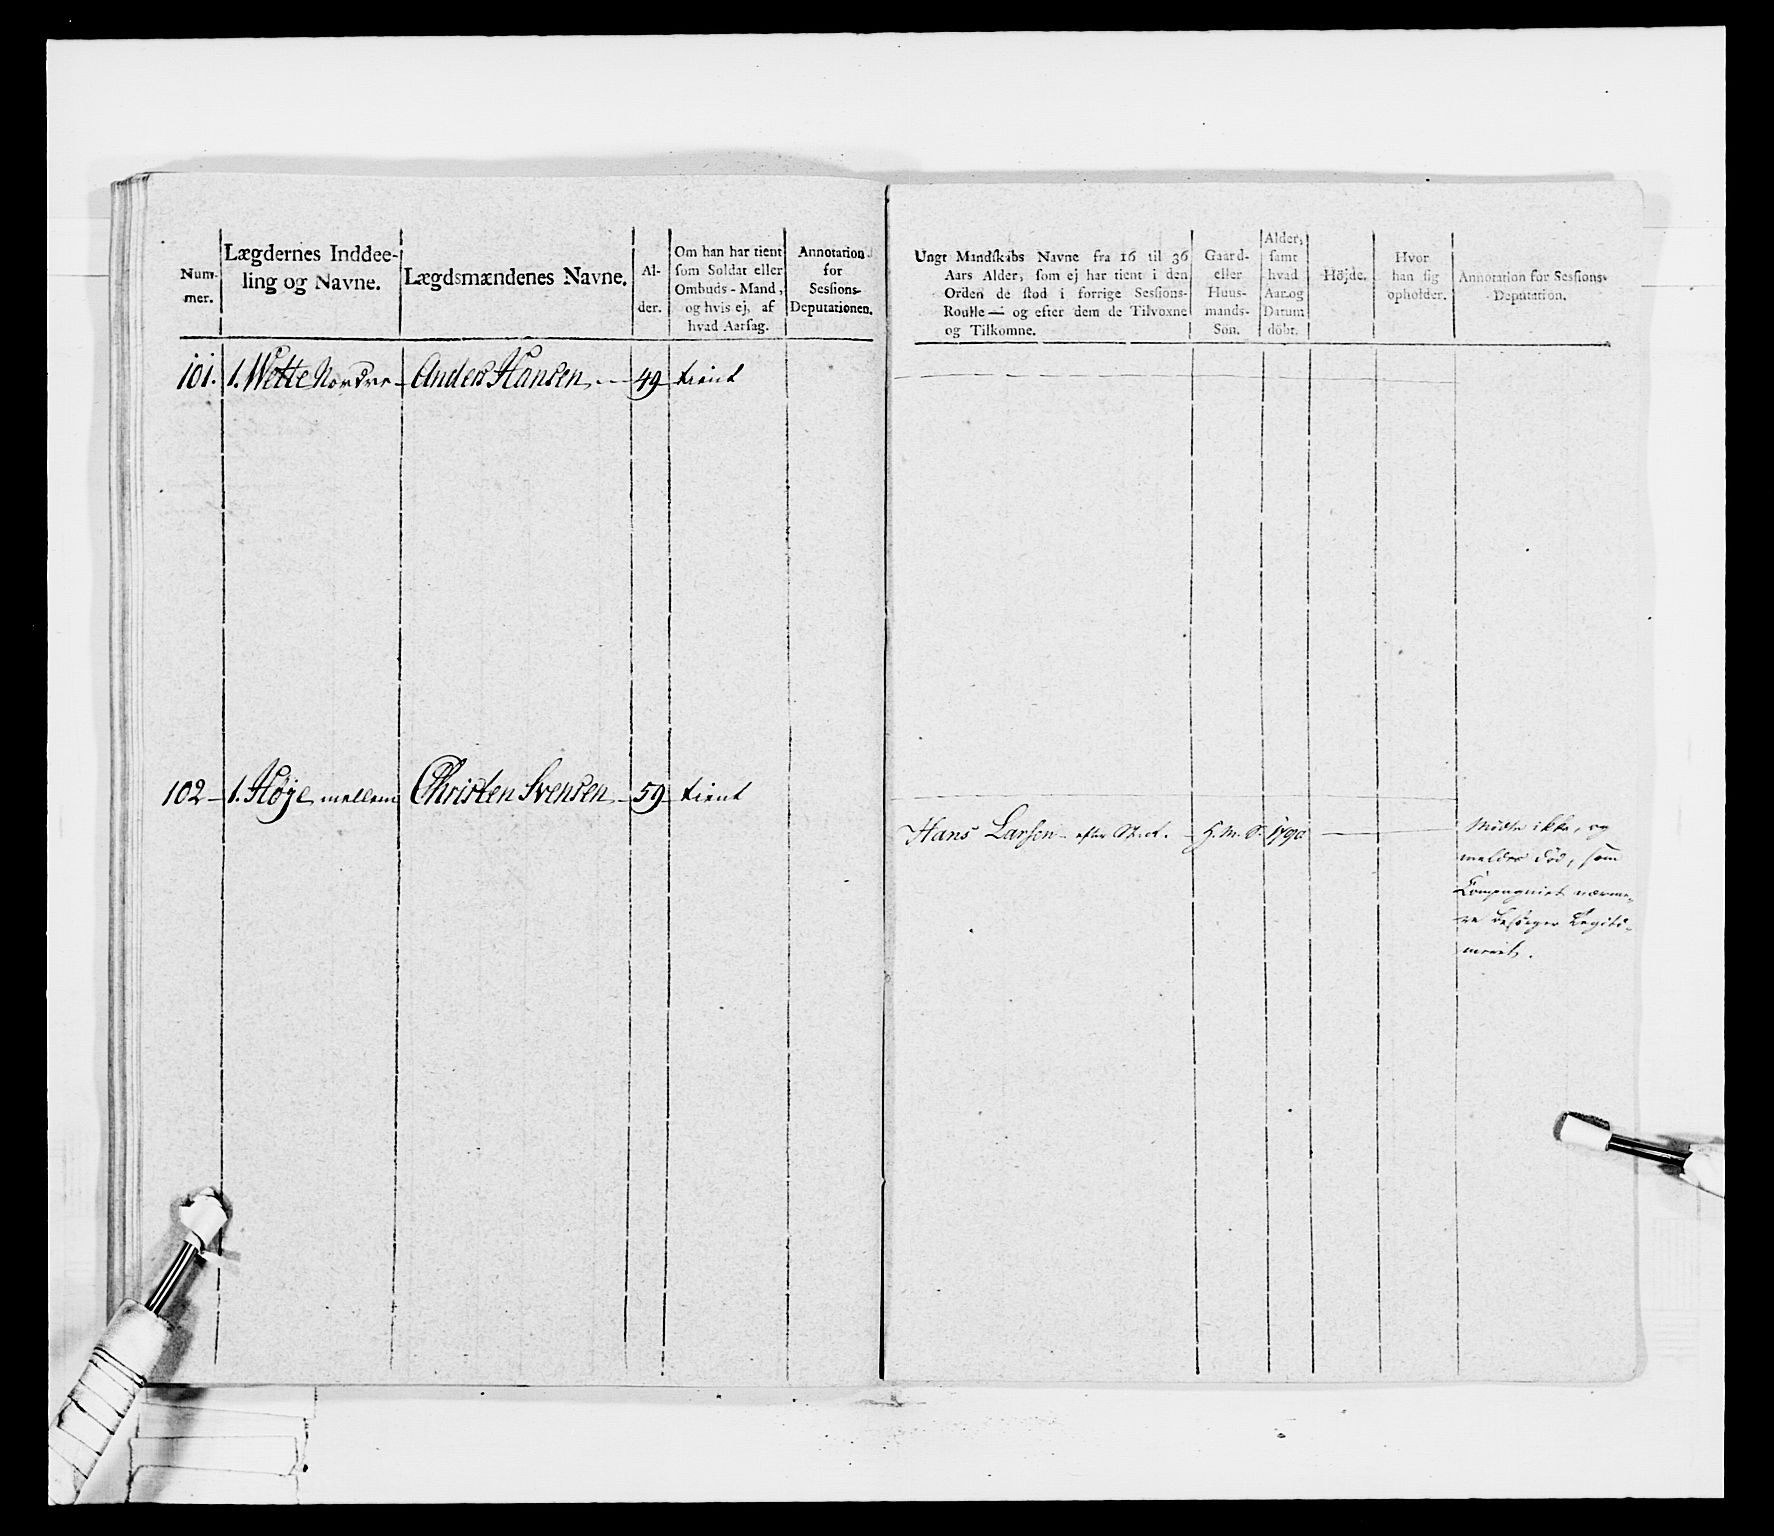 Num-
mer.
Lægdernes Inddee-
ling og Navne.
Lægdsmændenes Navne.
Al-
der.
Om han har tient
som Soldat eller
Ombuds-Mand,
og hvis ej, af
hvad Aarsag.
Annotation
for
Sessions-
Deputationen.
101. 1. Wette Nordre - Anders Hansen - 49 tient
102 - 1. Høye mellem Christen Svensen - 59 tient
Ungt Mandskabs Navne fra 16 til 36
Aars Alder, som ej har tient i den
Orden de stod i forrige Sessions-
Roulle — og efter dem de Tilvoxne
og Tilkomne.
Gaard-
eller
Huus-
mands-
Søn.
Alder,
samt
hvad
Aar og
Datum
döbt.
Höjde.
Hvor
han sig
opholder.
Annotation for Sessions-
Deputation.
Hans Larsen - efter - H. M. S. 1790
Mödte ikke, og
meldes död, som
Compagniet nærme-
re besörger Legiti-
meret.